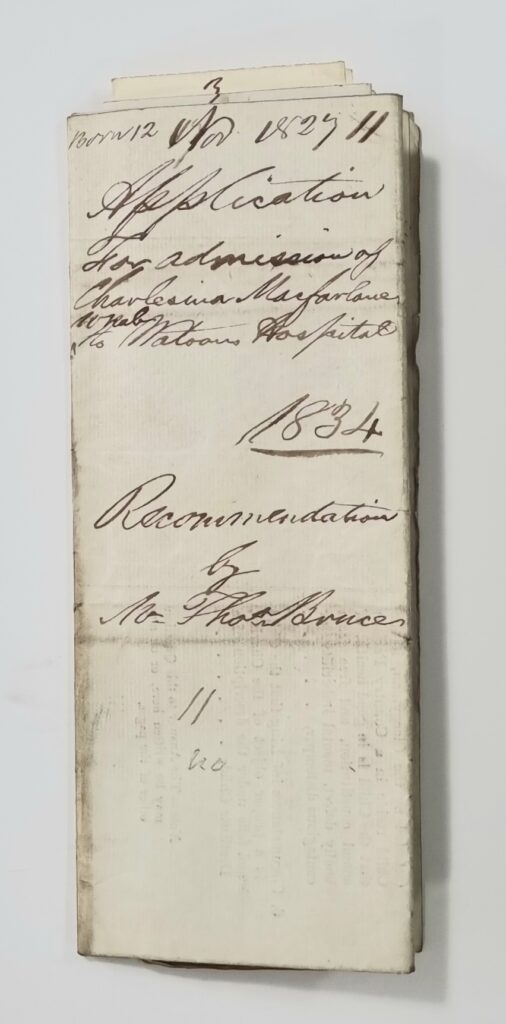 3
Born 12 Nov 1827 11
Application
For admission of
Charlesina Macfarlane
to Watsons Hospital
1834
Recommendation
by
Mr Thos Bruce
11